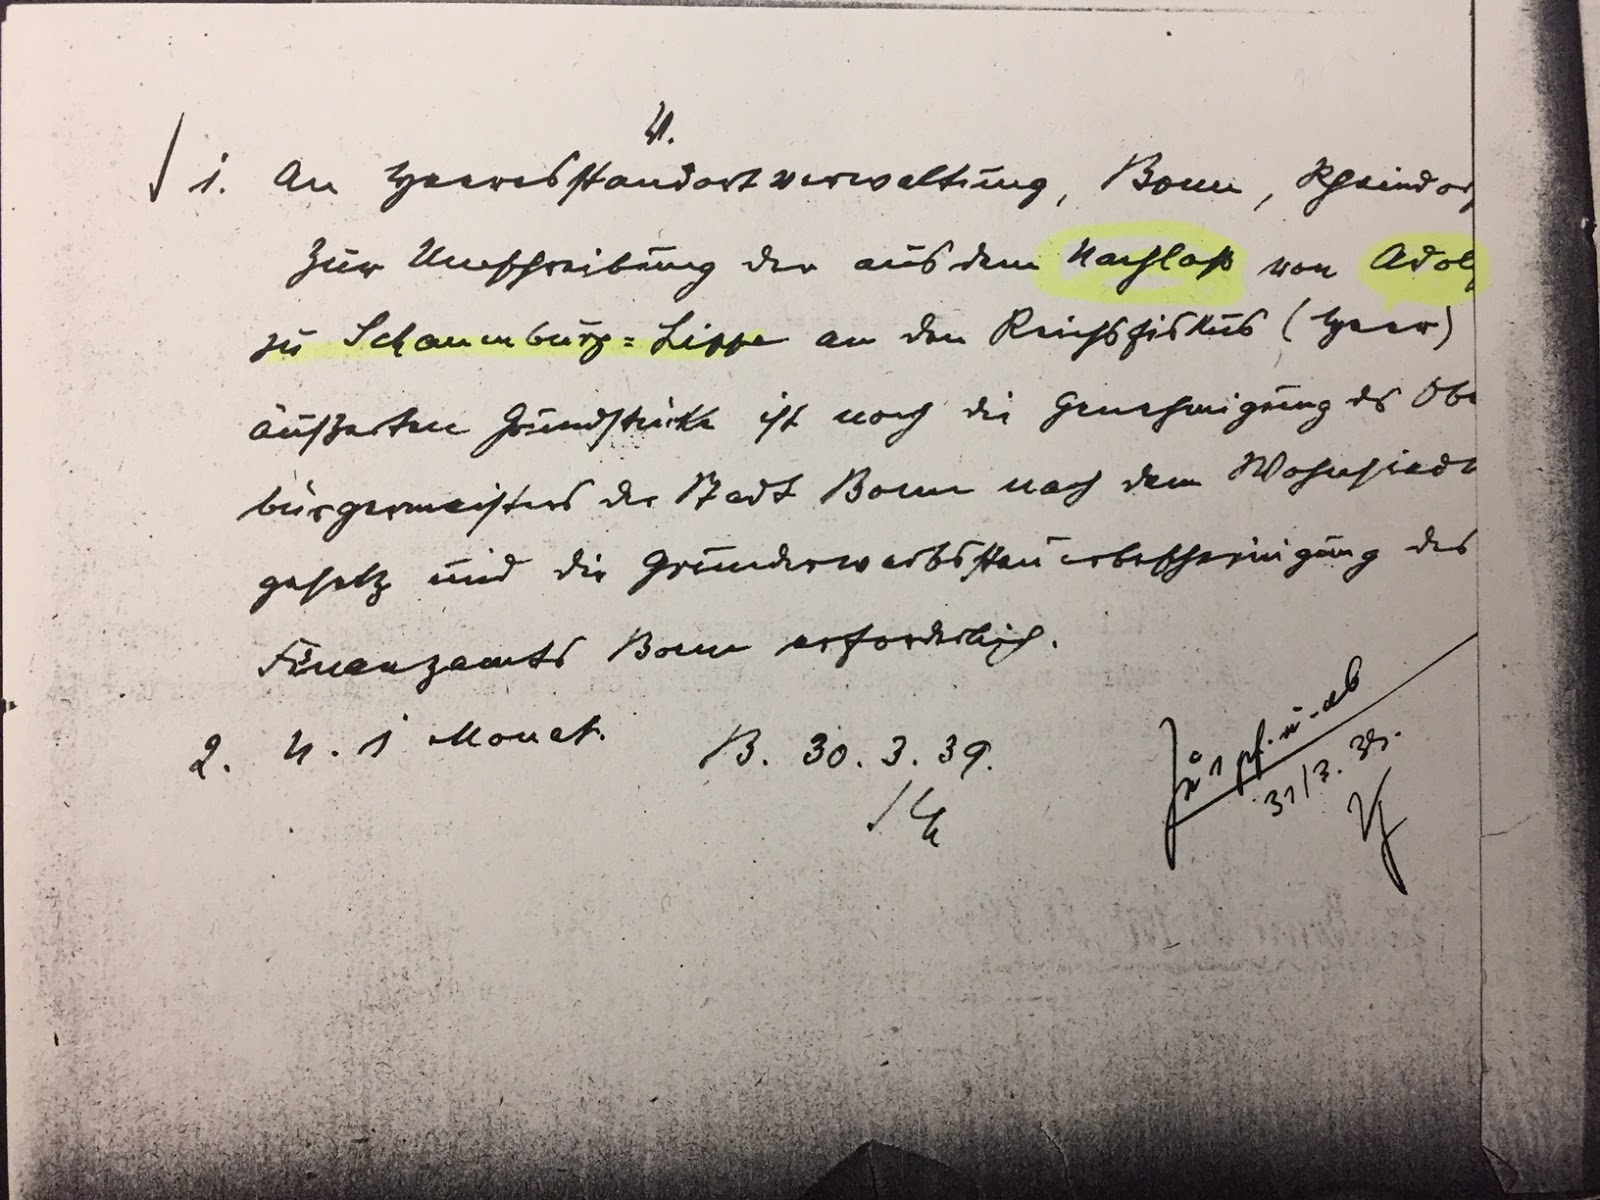 V.
1. An Heeresstandortverwaltung, Bonn, Rheindor
Zur Umschreibung der aus dem Nachlaß von Adol
zu Schaumburg=Lippe an den Reichsfiskus (Heer)
äußerten Grundstücke ist noch die Genehmigung des Obe
bürgermeisters der Stadt Bonn nach dem Wohnsiedl
gesetz und die Grunderwerbssteuerbescheinigung des
Finanzamts Bonn erforderlich.
2. n. 1 Monat. B. 30.3.39.
31/3. 39.